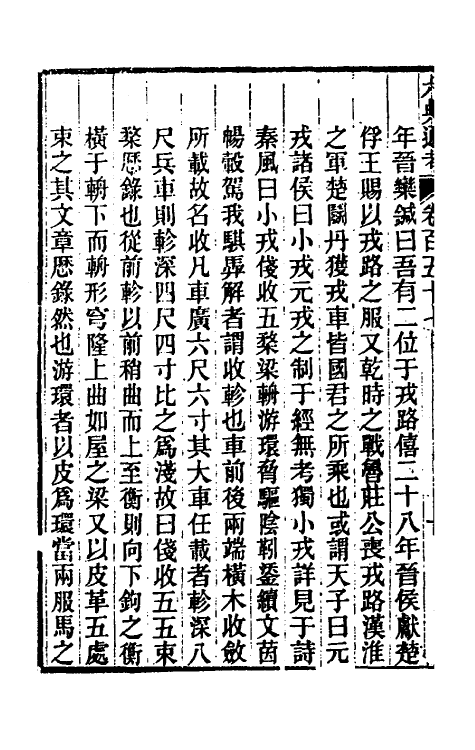 六典通考 卷百五十七
年晉欒鍼曰吾有二位于戎路僖二十八年晉侯獻楚
俘王賜以戎路之服又乾時之戰魯莊公喪戎路漢淮
之軍楚鬭丹獲戎車皆國君之所乘也或謂天子曰元
戎諸侯曰小戎元戎之制于經無考獨小戎詳見于詩
秦風曰小戎俴收五楘梁輈游環脅驅陰靷鋈續文茵
暢轂駕我騏馵解者謂收軫也車前後兩端橫木收斂
所載故名收凡車廣六尺六寸其大車任載者軫深八
尺兵車則軫深四尺四寸比之爲淺故曰俴收五五束
楘歷錄也從前軫以前稍曲而上至衡則向下鉤之衡
橫于輈下而輈形穹隆上曲如屋之梁又以皮革五處
束之其文章歷錄然也游環者以皮爲環當兩服馬之